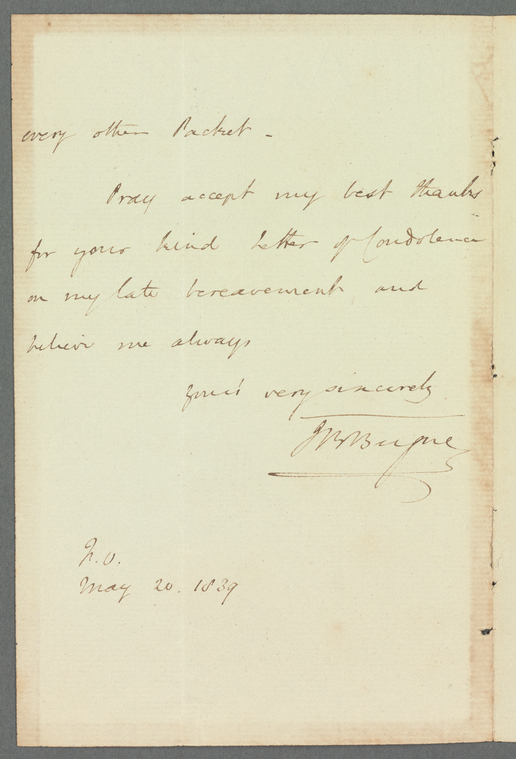 every other Packet -
Pray accept my best thanks
for your kind letter of Condolence
on my late bereavement and
believe me always
Your's very sincerely
F.O.
May 20. 1839